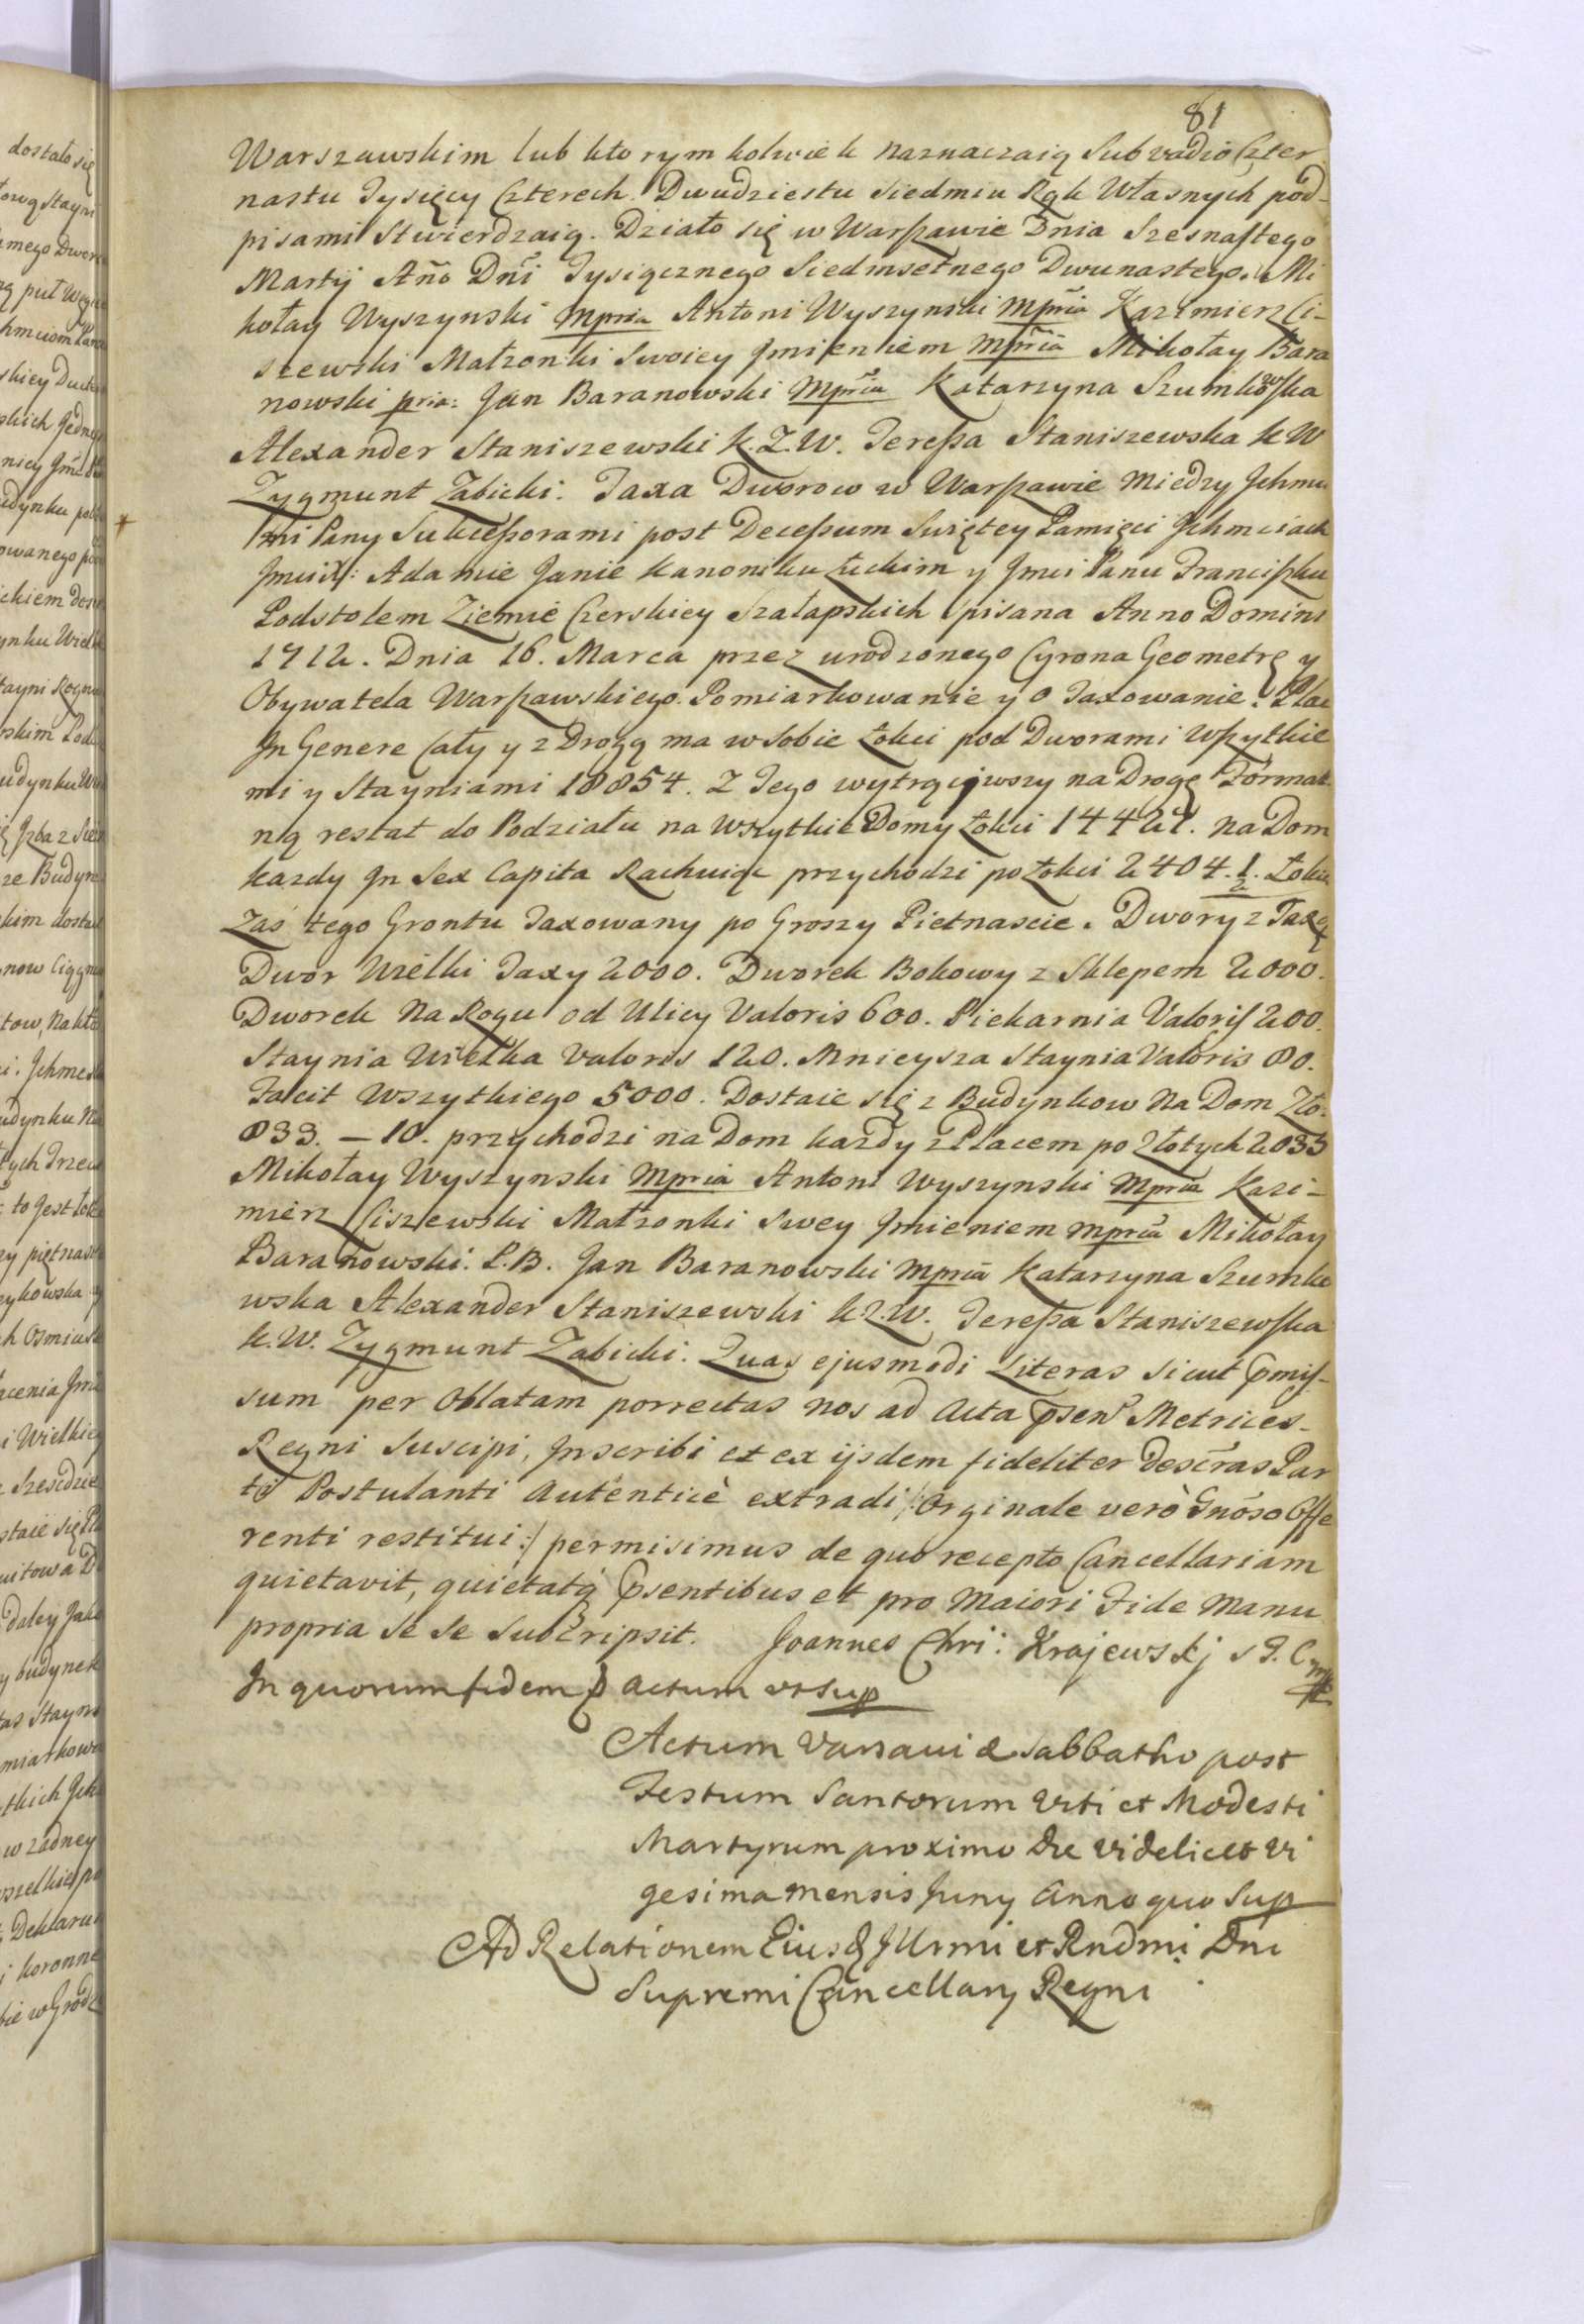 81
Warszawskim lub ktorymkolwiek naznaczaią Sub vadio Czter
nastu Tysięcy Czterech Dwudziestu Siedmiu Rąk Własnych pod-
pisami Stwierdzaią. Działo się w Warszawie Dnia Szesnastego
Martij Año Dñi Tysiącznego Siedmsetnego Dwunastego. Mi
kołay Wyszynski Mpria Antoni Wyszynski Mpria Kazimierz Ci-
szewski Małzonki Swoiey Jmieniem Mpria Mikołay Bara
nowski pria: Jan Baranowski Mpria Katarzyna Szumkowska
Alexander Staniszewski K.Z.W. Teressa Staniszewska K W
Zygmunt Zabicki. Taxa Dworow w Warszawie Miedzy Jchmu
mi Pany Sukcessorami post Decessum Swiętey Pamięci Jchmciach
Jmci X: Adamie Janie Kanoniku Łuckim y Jmci Panu Franciszku
Podstolem Ziemie Czerskiey Szałapskich spisana Anno Domini
1712. Dnia 16. Marca przez urodzonego Cyrona Geometrę y
Obywatela Warszawskiego. Pomiarkowanie y oTaxowanie. Plac
Jn Genere Cały y z Drogą ma w Sobie Łokci pod Dworami Wszytkie
mi y Stayniami 18854. Z Tego wytrąciwszy na Drogę Format
ną restat do Podziału na Wszytkie Domy Łokci 14427. na Dom
kazdy Jn Sex Capita Rachuiąc przychodzi po Łokci 2404. 1/2. Łokiec
Zas tego Grontu Taxowany po Groszy Pietnascie. Dwory z Taxą
Dwor Wielki Taxy 2000. Dworek Bokowy z Sklepem 2000.
Dworek Na Rogu od Ulicy Valoris 600. Piekarnia Valoris 200.
Staynia Wielka Valoris 120. Mnieysza Staynia Valoris 80.
Facit Wszytkiego 5000. Dostaie się z Budynkow Na Dom Zło.
833. – 10. przychodzi na Dom kazdy z Placem po Złotych 2035
Mikołay Wyszynski Mpria Antoni Wyszynski Mpria Kazi-
mierz Ciszewski Małzonki Swey Jmieniem mpria Mikołay
Baranowski. P.B. Jan Baranowski Mpria Katarzyna Szumko
wska Alexander Staniszewski K.Z.W. Teressa Staniszewska
K.W. Zygmunt Zabicki. Quas ejusmodi Literas Sicut p̃mis-
sum per Oblatam porrectas nos ad Acta p̃sen Metrices
Regni Suscipi, Jnscribi et ex ijsdem fideliter Descr̃as Par
ti Postulanti Autenticè extradi /: Orginale verò Gnõso Offe
renti restitui :/ permisimus de quo recepto Cancellariam
quietavit, quietatq̃ p̃sentibus et pro Maiori Fide Manu
propria Se Se Subscripsit. Joannes Chri: Krajewskj
Jn quorum fidem Actum ut Sup
Actum Varsaviæ Sabbatho post
Festum Santorum Viti et Modesti
Martyrum proximo Die Videlicet Vi
gesima Mensis Juny Anno quo Sup
Ad Relationem Eiusd Jllrmi et Rndmi Dni
Supremi Cancellarij Regni